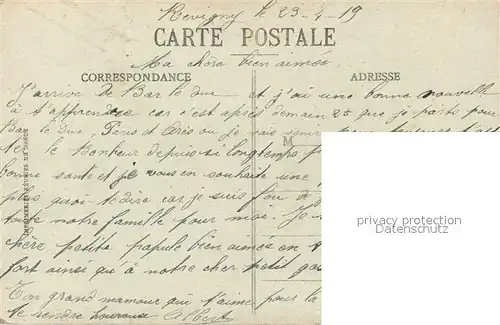 Revigny le 23-4-19
CARTE POSTALE
Ma chère bien aimée
CORRESPONDANCE
ADRESSE
J'arrive de Bar le duc et j'ai une bonne nouvelle
à t'apprendre car c'est après demain 25 que je parts pour
Bar le Duc, Paris et ou je sais
M
le Bonheur depuis si longtemps
bonne santé et je vous en souhaite une
plus quoi te dire car je suis fou de
toute notre famille pour moi. Je
privacy protection
Datenschutz
chère petite bien aimée en
fort ainsi qu'à notre cher petit
Ton grand mamour qui t'aime pour la
te rendre heureuse Albert
IMPRIMERIES RÉUNIES DE NANCY